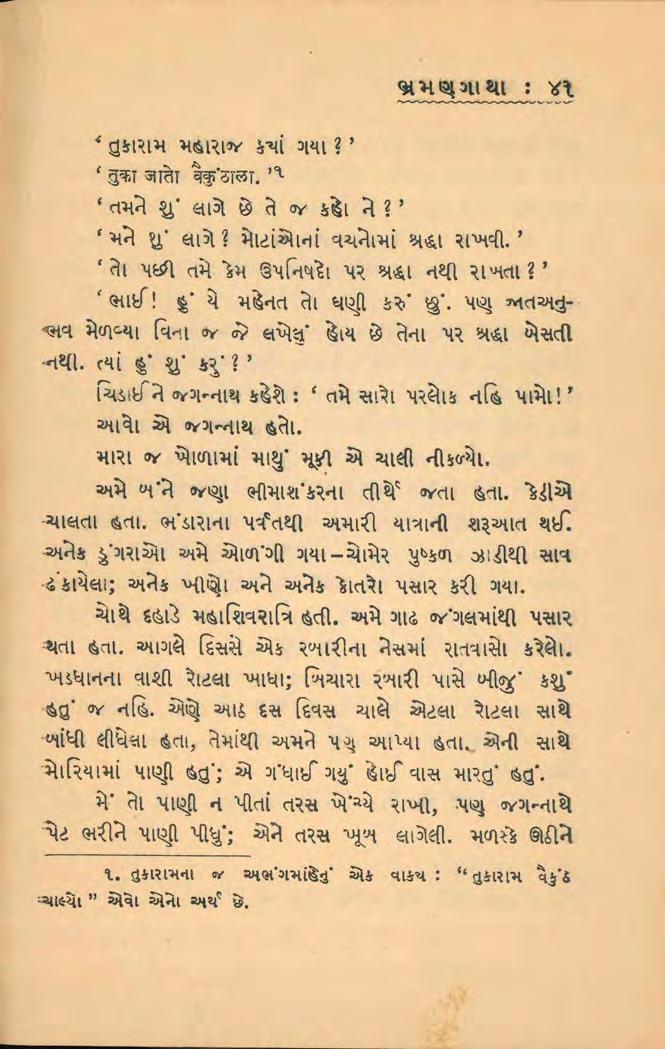 ભ્રમણગાથા : ૪૧
‘ તુકારામ મહારાજ ક્યાં ગયા ? ’
‘ तुका जातो वैकुंठाला. ’૧
‘ તમને શું લાગે છે તે જ કહો ને ? ’
‘ મને શું લાગે ? મોટાંઓનાં વચનોમાં શ્રદ્ધા રાખવી. ’
‘ તો પછી તમે કેમ ઉપનિષદો પર શ્રદ્ધા નથી રાખતા ? ’
‘ ભાઈ ! હું યે મહેનત તો ઘણી કરું છું. પણ જાતઅનુ-
ભવ મેળવ્યા વિના જ જે લખેલું હોય છે તેના પર શ્રદ્ધા બેસતી
નથી. ત્યાં હું શું કરું ? ’
ચિડાઈને જગન્નાથ કહેશે : ‘ તમે સારો પરલોક નહિ પામો! ’
આવો એ જગન્નાથ હતો.
મારા જ ખોળામાં માથું મૂકી એ ચાલી નીકળ્યો.
અમે બંને જણા ભીમાશંકરના તીર્થે જતા હતા. કેડીએ
ચાલતા હતા. ભંડારાના પર્વતથી અમારી યાત્રાની શરૂઆત થઈ.
અનેક ડુંગરાઓ અમે ઓળંગી ગયા – ચોમેર પુષ્કળ ઝાડીથી સાવ
ઢંકાયેલા; અનેક ખીણો અને અનેક કોતરો પસાર કરી ગયા.
ચોથે દહાડે મહાશિવરાત્રિ હતી. અમે ગાઢ જંગલમાંથી પસાર
થતા હતા. આગલે દિસસે એક રબારીના નેસમાં રાતવાસો કરેલો.
ખડધાનના વાશી રોટલા ખાધા; બિચારા રબારી પાસે બીજું કશું
હતું જ નહિ. એણે આઠ દસ દિવસ ચાલે એટલા રોટલા સાથે
બાંધી લીધેલા હતા, તેમાંથી અમને પણ આપ્યા હતા. એની સાથે
મોરિયામાં પાણી હતું; એ ગંધાઈ ગયું હોઈ વાસ મારતું હતું.
મેં તો પાણી ન પીતાં તરસ ખેંચ્યે રાખી, પણ જગન્નાથે
પેટ ભરીને પાણી પીધું; એને તરસ ખૂબ લાગેલી. મળસ્કે ઊઠીને
૧. તુકારામના જ અભંગમાંહેનું એક વાક્ય : “ તુકારામ વૈકુંઠ
ચાલ્યો ” એવો એનો અર્થ છે.